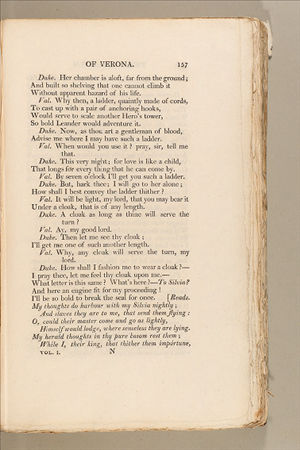 OF VERONA. 157
Duke. Her chamber is aloft, far from the ground;
And built so shelving that one cannot climb it
Without apparent hazard of his life.
Val. Why then, a ladder, quaintly made of cords,
To cast up with a pair of anchoring hooks,
Would serve to scale another Hero's tower,
So bold Leander would adventure it.
Duke. Now, as thou art a gentleman of blood,
Advise me where I may have such a ladder.
Val. When would you use it? pray, sir, tell me
that.
Duke. This very night; for love is like a child,
That longs for every thing that he can come by.
Val. By seven o'clock I'll get you such a ladder.
Duke. But, hark thee; I will go to her alone;
How shall I best convey the ladder thither?
Val. It will be light, my lord, that you may bear it
Under a cloak, that is of any length.
Duke. A cloak as long as thine will serve the
turn?
Val. Ay, my good lord.
Duke. Then let me see thy cloak;
I'll get me one of such another length.
Val. Why, any cloak will serve the turn, my
lord.
Duke. How shall I fashion me to wear a cloak?—
I pray thee, let me feel thy cloak upon me.—
What letter is this same? What's here?—To Silvia?
And here an engine fit for my proceeding!
I'll be so bold to break the seal for once. [Reads.
My thoughts do harbour with my Silvia nightly;
And slaves they are to me, that send them flying:
O, could their master come and go as lightly,
Himself would lodge, where senseless they are lying.
My herald thoughts in thy pure bosom rest them;
While I, their king, that thither them importune,
VOL. I. N